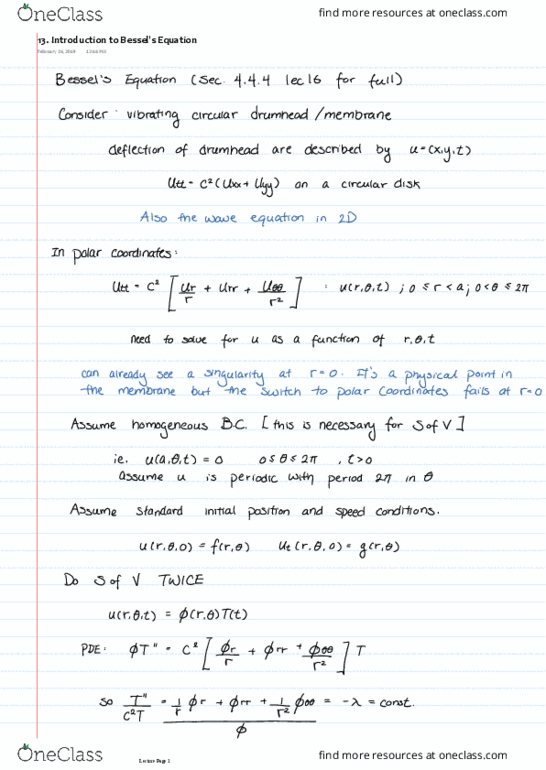 OneClass
find more resources at oneclass.com
13. Introduction to Bessel's Equation
Bessel's Equation (sec. 4.4.4 lec 16 for full)
Consider vibrating circular drumhead/membrane
deflection of drumhead are described by u=(x,y,t)
Utt = C² (Uxx + Uyy) on a circular disk
Also the wave equation in 2D
In polar coordinates:
Utt = C² [ Ur/r + Urr + Uθθ/r² ] : u(r,θ,t) ; 0 ≤ r < a ; 0 < θ ≤ 2π
need to solve for u as a function of r,θ,t
can already see a singularity at r=0. It's a physical point in
the membrane but the switch to polar coordinates fails at r=0
Assume homogeneous B.C. [this is necessary for S of V]
ie. u(a,θ,t) = 0 0 ≤ θ ≤ 2π , t>0
assume u is periodic with period 2π in θ
Assume standard initial position and speed conditions.
u(r,θ,0) = f(r,θ) Ut(r,θ,0) = g(r,θ)
Do S of V TWICE
u(r,θ,t) = ϕ(r,θ)T(t)
PDE: ϕT'' = C² [ ϕr/r + ϕrr + ϕθθ/r² ] T
so T''/C²T = (1/r ϕr + ϕrr + 1/r² ϕθθ)/ϕ = -λ = const.
OneClass
Lecture Page 1
find more resources at oneclass.com